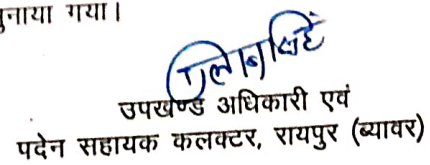 ुनाया गया।
गुलाब सिंह
उपखण्ड अधिकारी एवं
पदेन सहायक कलक्टर, रायपुर (ब्यावर)